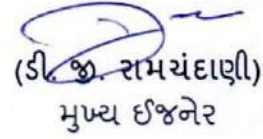 (ડી. જી. રામચંદાણી)
મુખ્ય ઈજનેર